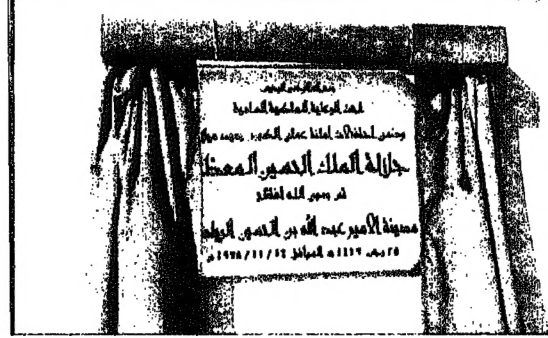 بسم الله الرحمن الرحيم
تحت الرعاية الملكية السامية
وضمن احتفالات أمانة عمان الكبرى بعيد ميلاد
جلالة الملك الحسين المعظم
تم بعون الله افتتاح
مدينة الأمير عبد الله بن الحسين الرياضية
هـ الموافق